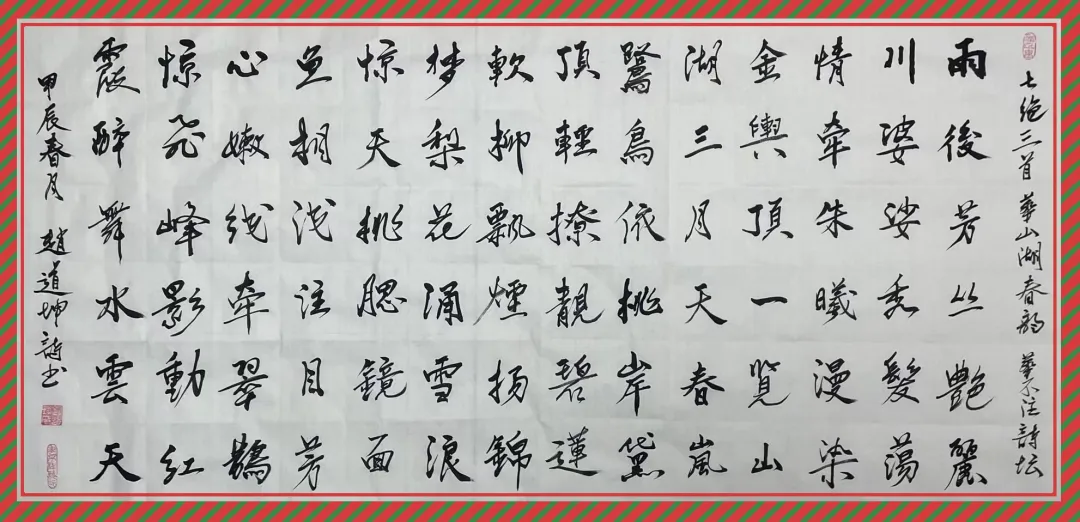 七绝三首 華山湖春韵 華不注詩坛
雨後芳丛艷麗
川婆娑秀髮蕩
情牵朱曦漫染
金輿頂一览山
湖三月天春嵐
鷺鳥依桃岸黛
頂輕撩靚碧蓮
軟柳飄煙揚錦
梦梨花涌雪浪
惊天桃腮鏡面
鱼翔浅注目芳
心嫩线牵翠鵲
惊飛峰影動红
霞醉舞水雲天
甲辰春月 趙道坤詩书